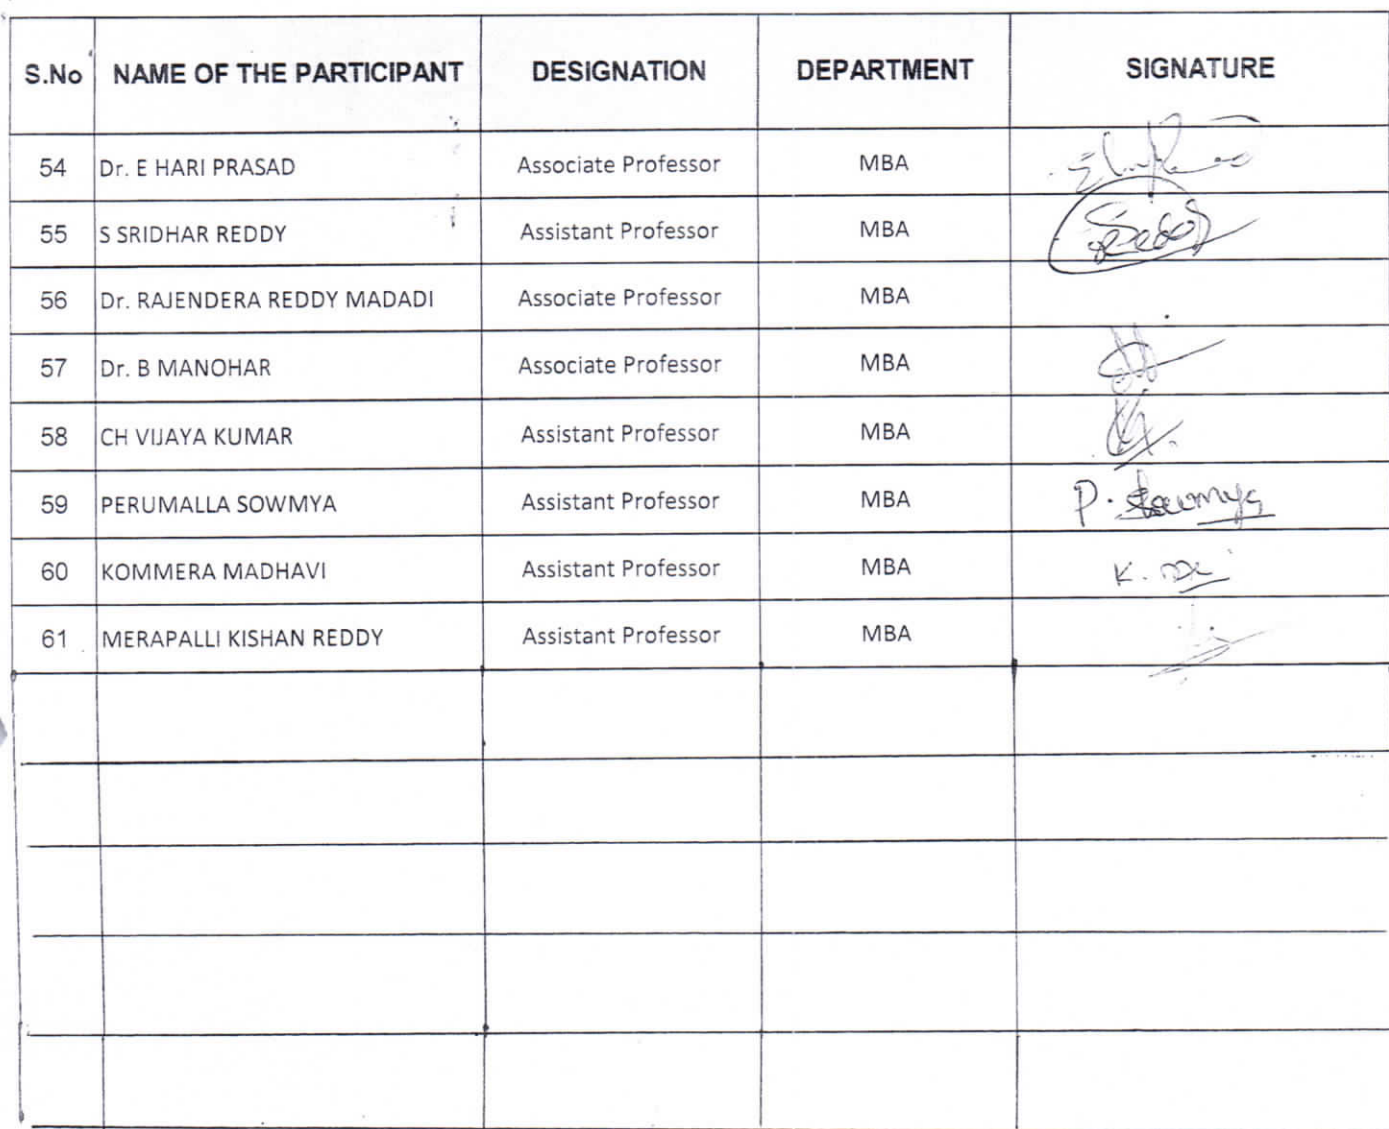 S.No NAME OF THE PARTICIPANT DESIGNATION DEPARTMENT SIGNATURE
54 Dr. E HARI PRASAD Associate Professor MBA
55 S SRIDHAR REDDY Assistant Professor MBA
56 Dr. RAJENDERA REDDY MADADI Associate Professor MBA
57 Dr. B MANOHAR Associate Professor MBA
58 CH VIJAYA KUMAR Assistant Professor MBA
59 PERUMALLA SOWMYA Assistant Professor MBA P. Sowmya
60 KOMMERA MADHAVI Assistant Professor MBA K.
61 MERAPALLI KISHAN REDDY Assistant Professor MBA